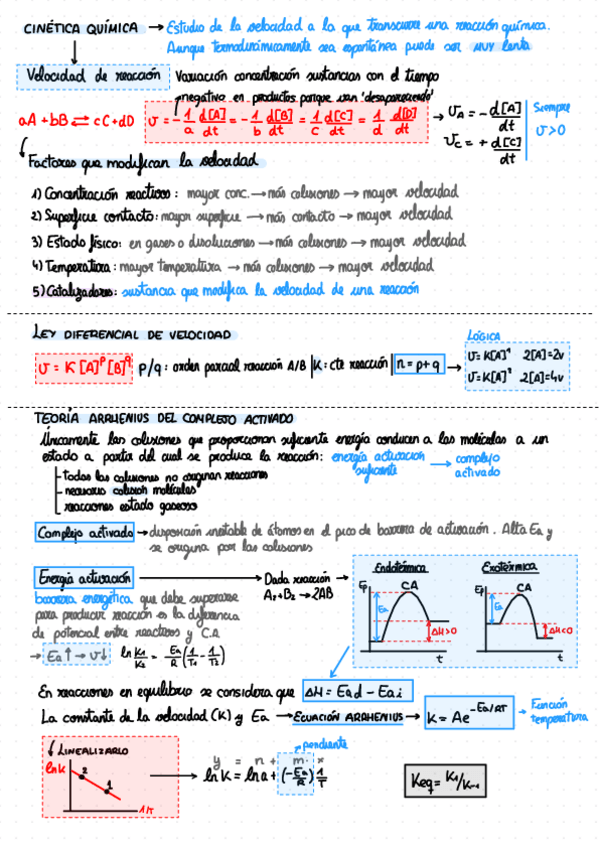 CINÉTICA QUÍMICA → Estudio de la velocidad a la que transcurre una reacción química.
Aunque termodinámicamente sea espontánea puede ser muy lenta
Velocidad de reacción Variación concentración sustancias con el tiempo
negativo en productos porque van 'desapareciendo'
aA + bB ⇄ cC + dD v = - 1/a d[A]/dt = - 1/b d[B]/dt = 1/c d[C]/dt = 1/d d[D]/dt → v_A = - d[A]/dt Siempre
v_C = + d[C]/dt v>0
Factores que modifican la velocidad
1) Concentración reactivos: mayor conc. → más colisiones → mayor velocidad
2) Superficie contacto: mayor superficie → más contacto → mayor velocidad
3) Estado físico: en gases o disoluciones → más colisiones → mayor velocidad
4) Temperatura: mayor temperatura → más colisiones → mayor velocidad
5) Catalizadores: sustancia que modifica la velocidad de una reacción
LEY DIFERENCIAL DE VELOCIDAD
LÓGICA
v = K [A]^p [B]^q p/q: orden parcial reacción A/B | K: cte reacción | n = p+q → v=K[A]^1 2[A]=2v
v=K[A]^2 2[A]=4v
TEORÍA ARRHENIUS DEL COMPLEJO ACTIVADO
Únicamente las colisiones que proporcionan suficiente energía conducen a las moléculas a un
estado a partir del cual se produce la reacción: energía activación suficiente → complejo activado
- todas las colisiones no originan reacciones
- necesario colisión moléculas
- reacciones estado gaseoso
Complejo activado → disposición inestable de átomos en el pico de barrera de activación. Alta Ea y
se origina por las colisiones
Energía activación → Dada reacción
A2+B2 → 2AB
barrera energética que debe superarse
para producir reacción es la diferencia
de potencial entre reactivos y C.A
→ Ea↑ → v↓ ln K1/K2 = Ea/R (1/T1 - 1/T2)
Endotérmica
Ep CA
Ea
ΔH>0
t
Exotérmica
Ep CA
Ea
ΔH<0
t
En reacciones en equilibrio se considera que ΔH = Ea d - Ea i
La constante de la velocidad (K) y Ea → ECUACIÓN ARRHENIUS → K = Ae^(-Ea/RT) → Función temperatura
LINEALIZARLO
ln K
2
1
1/T
pendiente
y = n + m · x
ln K = ln a + (-Ea/R) 1/T
Keq = K1/K-1